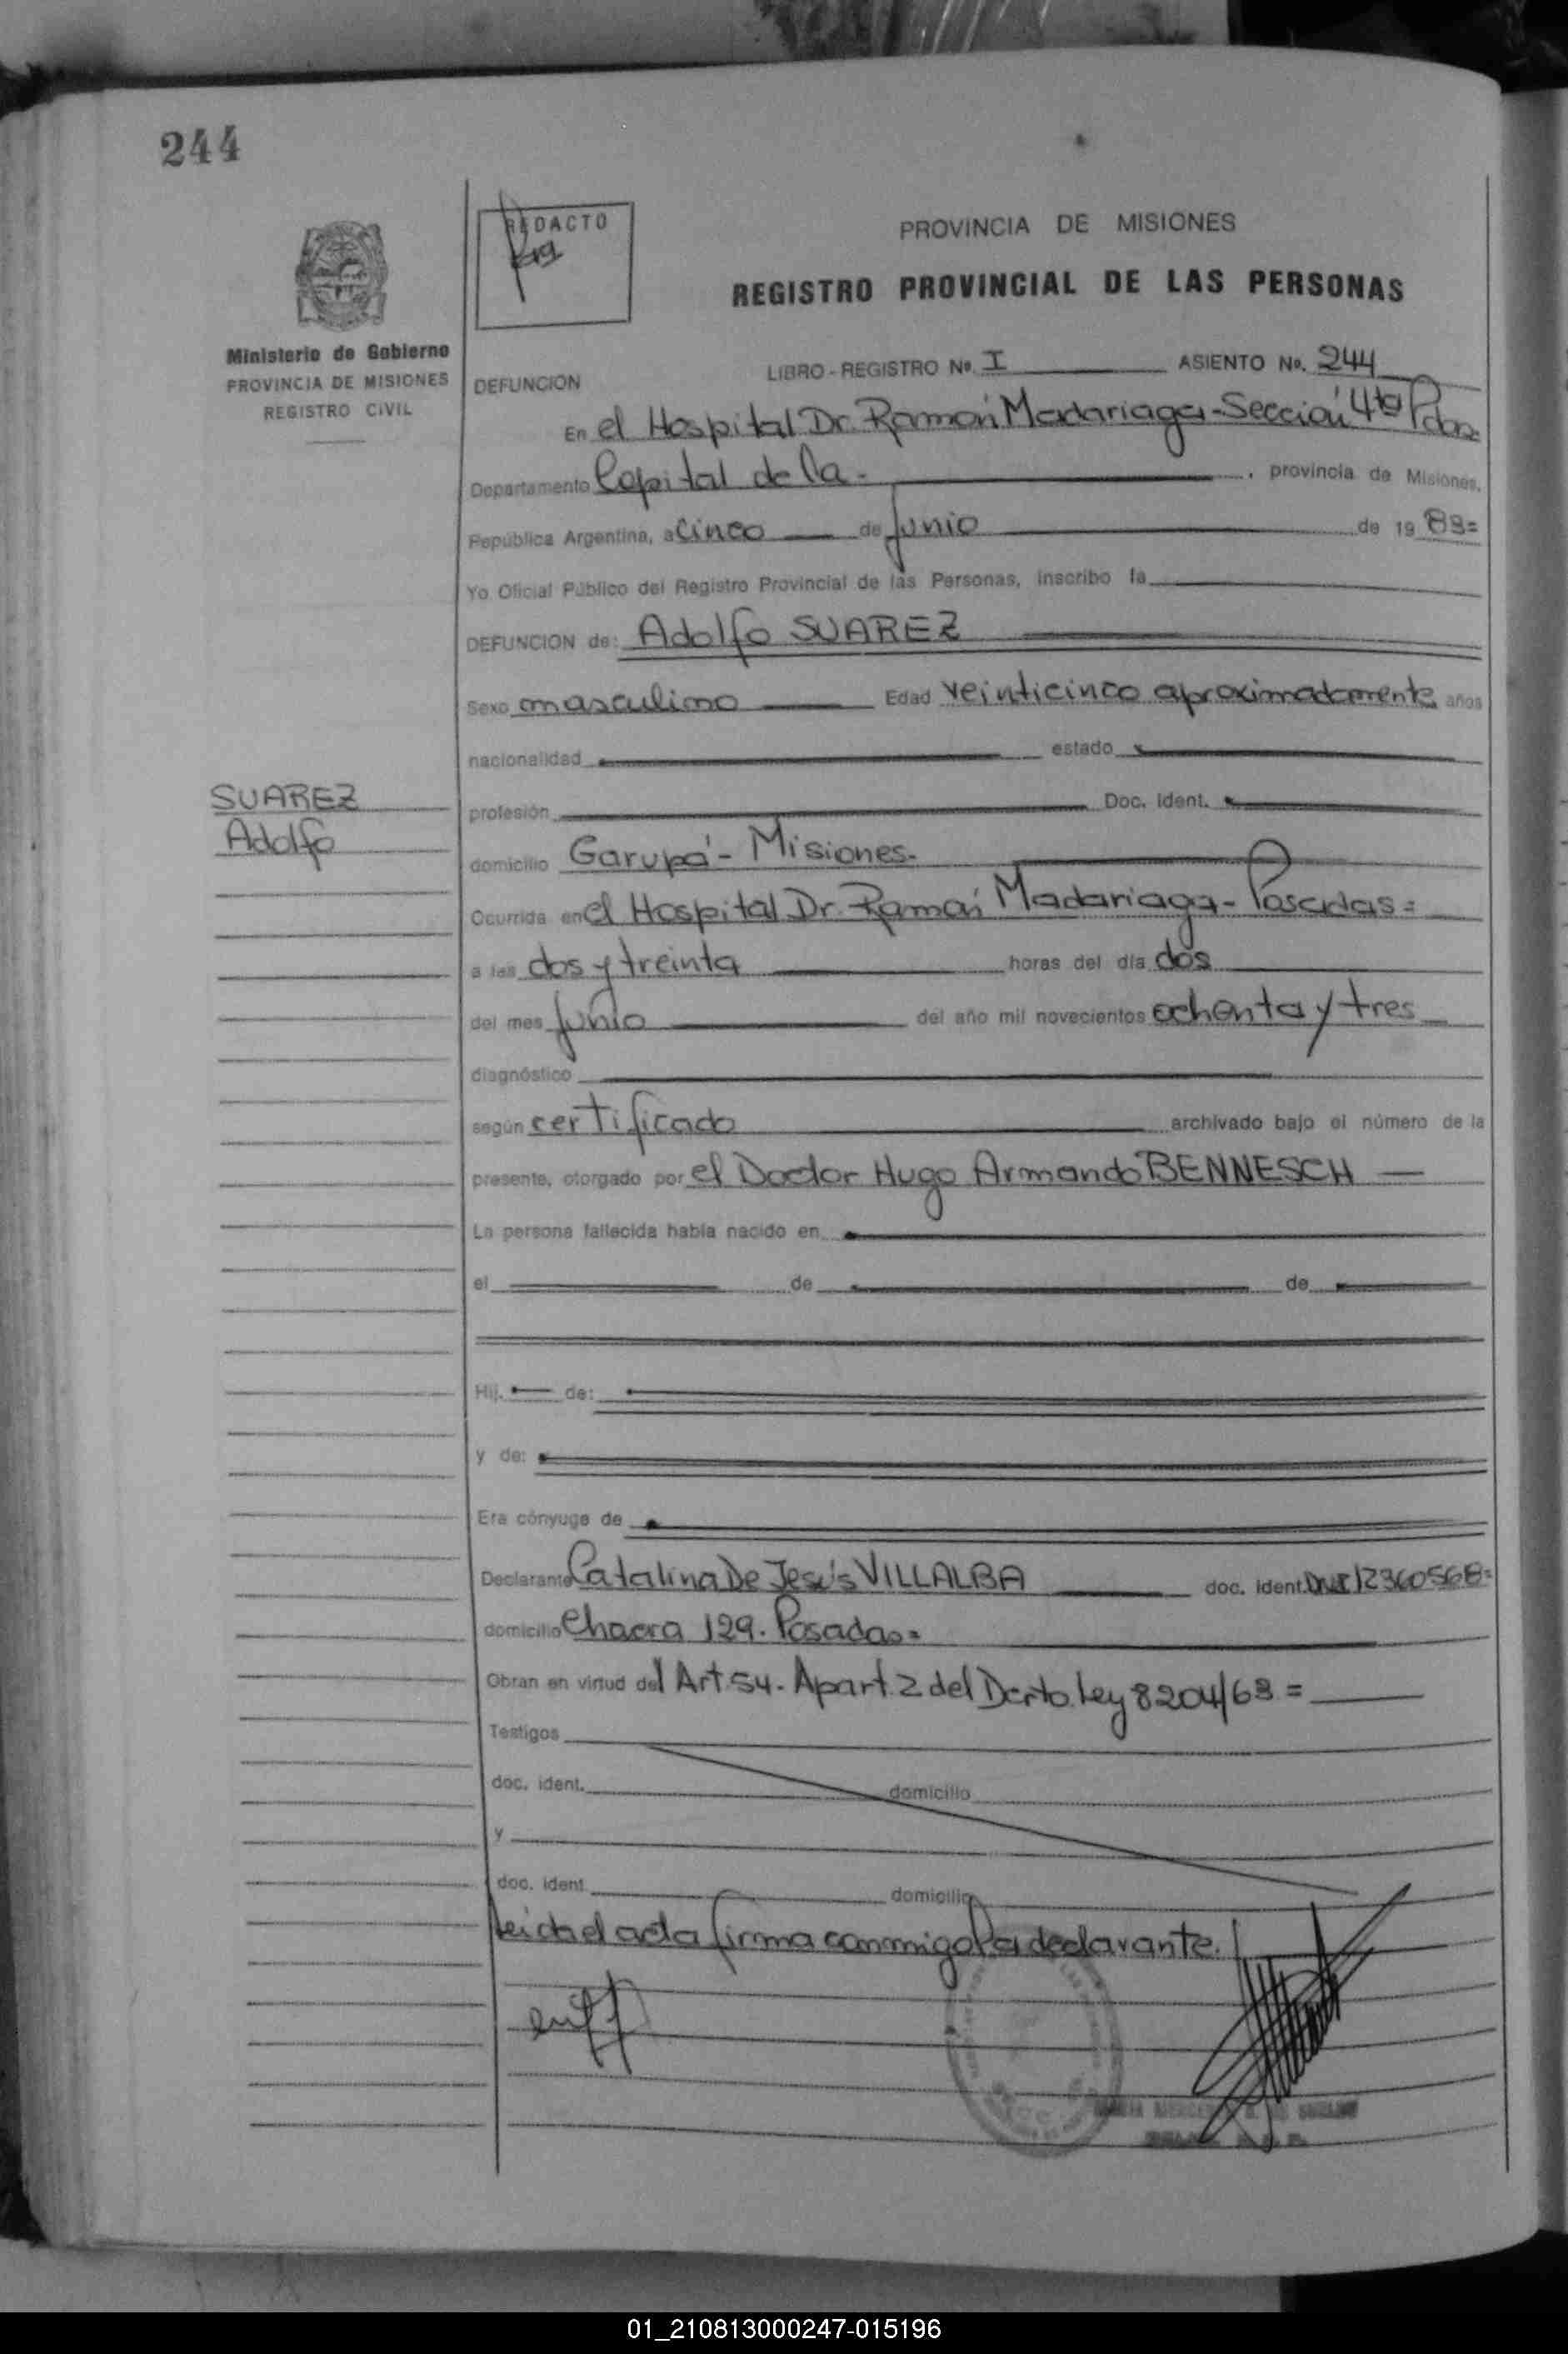 244
REDACTO
PROVINCIA DE MISIONES
REGISTRO PROVINCIAL DE LAS PERSONAS
Ministerio de Gobierno
PROVINCIA DE MISIONES
REGISTRO CIVIL
LIBRO - REGISTRO Nº. I ASIENTO Nº. 244
DEFUNCION
En el Hospital Dr. Ramón Madariaga - Sección 4ta Pdas.
Departamento Capital de la - , provincia de Misiones,
República Argentina, a cinco de junio de 19 83=
Yo Oficial Público del Registro Provincial de las Personas, inscribo la
DEFUNCION de: Adolfo SUAREZ
Sexo masculino Edad veinticinco aproximadamente años
nacionalidad estado
SUAREZ
Adolfo
profesión Doc. Ident.
domicilio Garupá - Misiones.
Ocurrida en el Hospital Dr. Ramón Madariaga - Posadas=
a las dos y treinta horas del día dos
del mes junio del año mil novecientos ochenta y tres
diagnóstico
según certificado archivado bajo el número de la
presente, otorgado por el Doctor Hugo Armando BENNESCH
La persona fallecida había nacido en
el de de
Hij. de:
y de:
Era cónyuge de
Declarante Catalina De Jesús VILLALBA doc. ident. DNI 12360568=
domicilio Chacra 129. Posadas=
Obran en virtud del Art. 54. Apart. 2 del Dcrto. Ley 8204/63 =
Testigos
doc. ident. domicilio
y
doc. ident. domicilio
Leida el acta firma conmigo la declarante.